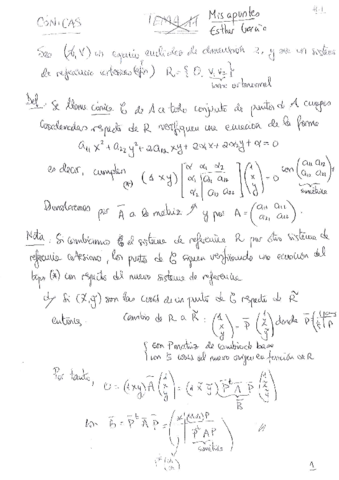 CÓNICAS
TEMA 11
Mis apuntes
Esther García
Sea (A, V) un espacio euclídeo de dimensión 2, y sea un sistema
de referencia cartesiano R = { O, v₁, v₂ }
base ortonormal
Def. Se llama cónica C de A a todo conjunto de puntos de A cuyas
coordenadas respecto de R verifiquen una ecuación de la forma
a₁₁x² + a₂₂y² + 2a₁₂xy + 2α₁x + 2α₂y + α = 0
es decir, cumplen
(*) (1 x y) [α α₁ α₂ / α₁ a₁₁ a₁₂ / α₂ a₁₂ a₂₂] (1 x y) = 0 con (a₁₁ a₁₂ / a₁₂ a₂₂)
simétrica
Denotaremos por Ā a la matriz y por A = (a₁₁ a₁₂ / a₁₂ a₂₂)
Nota: Si cambiamos el sistema de referencia R por otro sistema de
referencia cartesiano, los puntos de C siguen verificando una ecuación del
tipo (*) con respecto del nuevo sistema de referencia
Si (x̃, ỹ) son las coord de un punto de C respecto de R̃
entonces
Cambio de R a R̃: (1 x y) = P̄ (1 x̃ ỹ) donde P̄ =
con P matriz de cambio de base
con coord del nuevo origen en función de R
Por tanto, 0 = (1 x y) Ā (1 x y) = (1 x̃ ỹ) P̄ᵗ Ā P̄ (1 x̃ ỹ)
B̄
con B̄ = P̄ᵗ Ā P̄ =
PᵗAP
simétrica
1